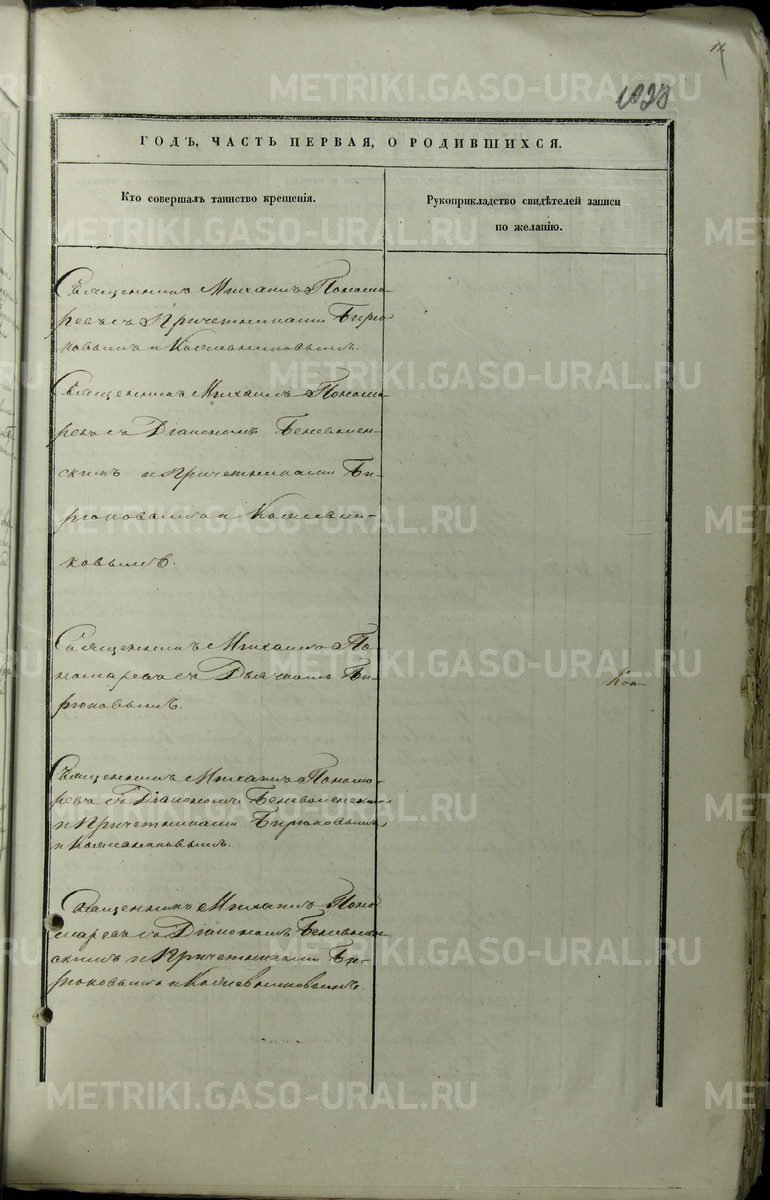 11.
1028
ГОДЪ, ЧАСТЬ ПЕРВАЯ, О РОДИВШИХСЯ.
Кто совершалъ таинство крещенія.
Рукоприкладство свидѣтелей записи
по желанію.
Священникъ Михаилъ Понома-
ревъ съ Причетниками Бирю
ковымъ и
Священникъ Михаилъ Понома
ревъ съ Діакономъ Беневолен-
скимъ и Причетниками Би-
рюковымъ и
ковымъ.
Священникъ Михаилъ По-
номаревъ съ Дьячкомъ Би-
рюковымъ.
Священникъ Михаилъ Понома-
ревъ съ Діакономъ Беневоленским
и Причетниками Бирюковымъ
и
Священникъ Михаилъ Поно
маревъ съ Діакономъ Беневолен
скимъ и Причетниками Би-
рюковымъ и
METRIKI.GASO-URAL.RU